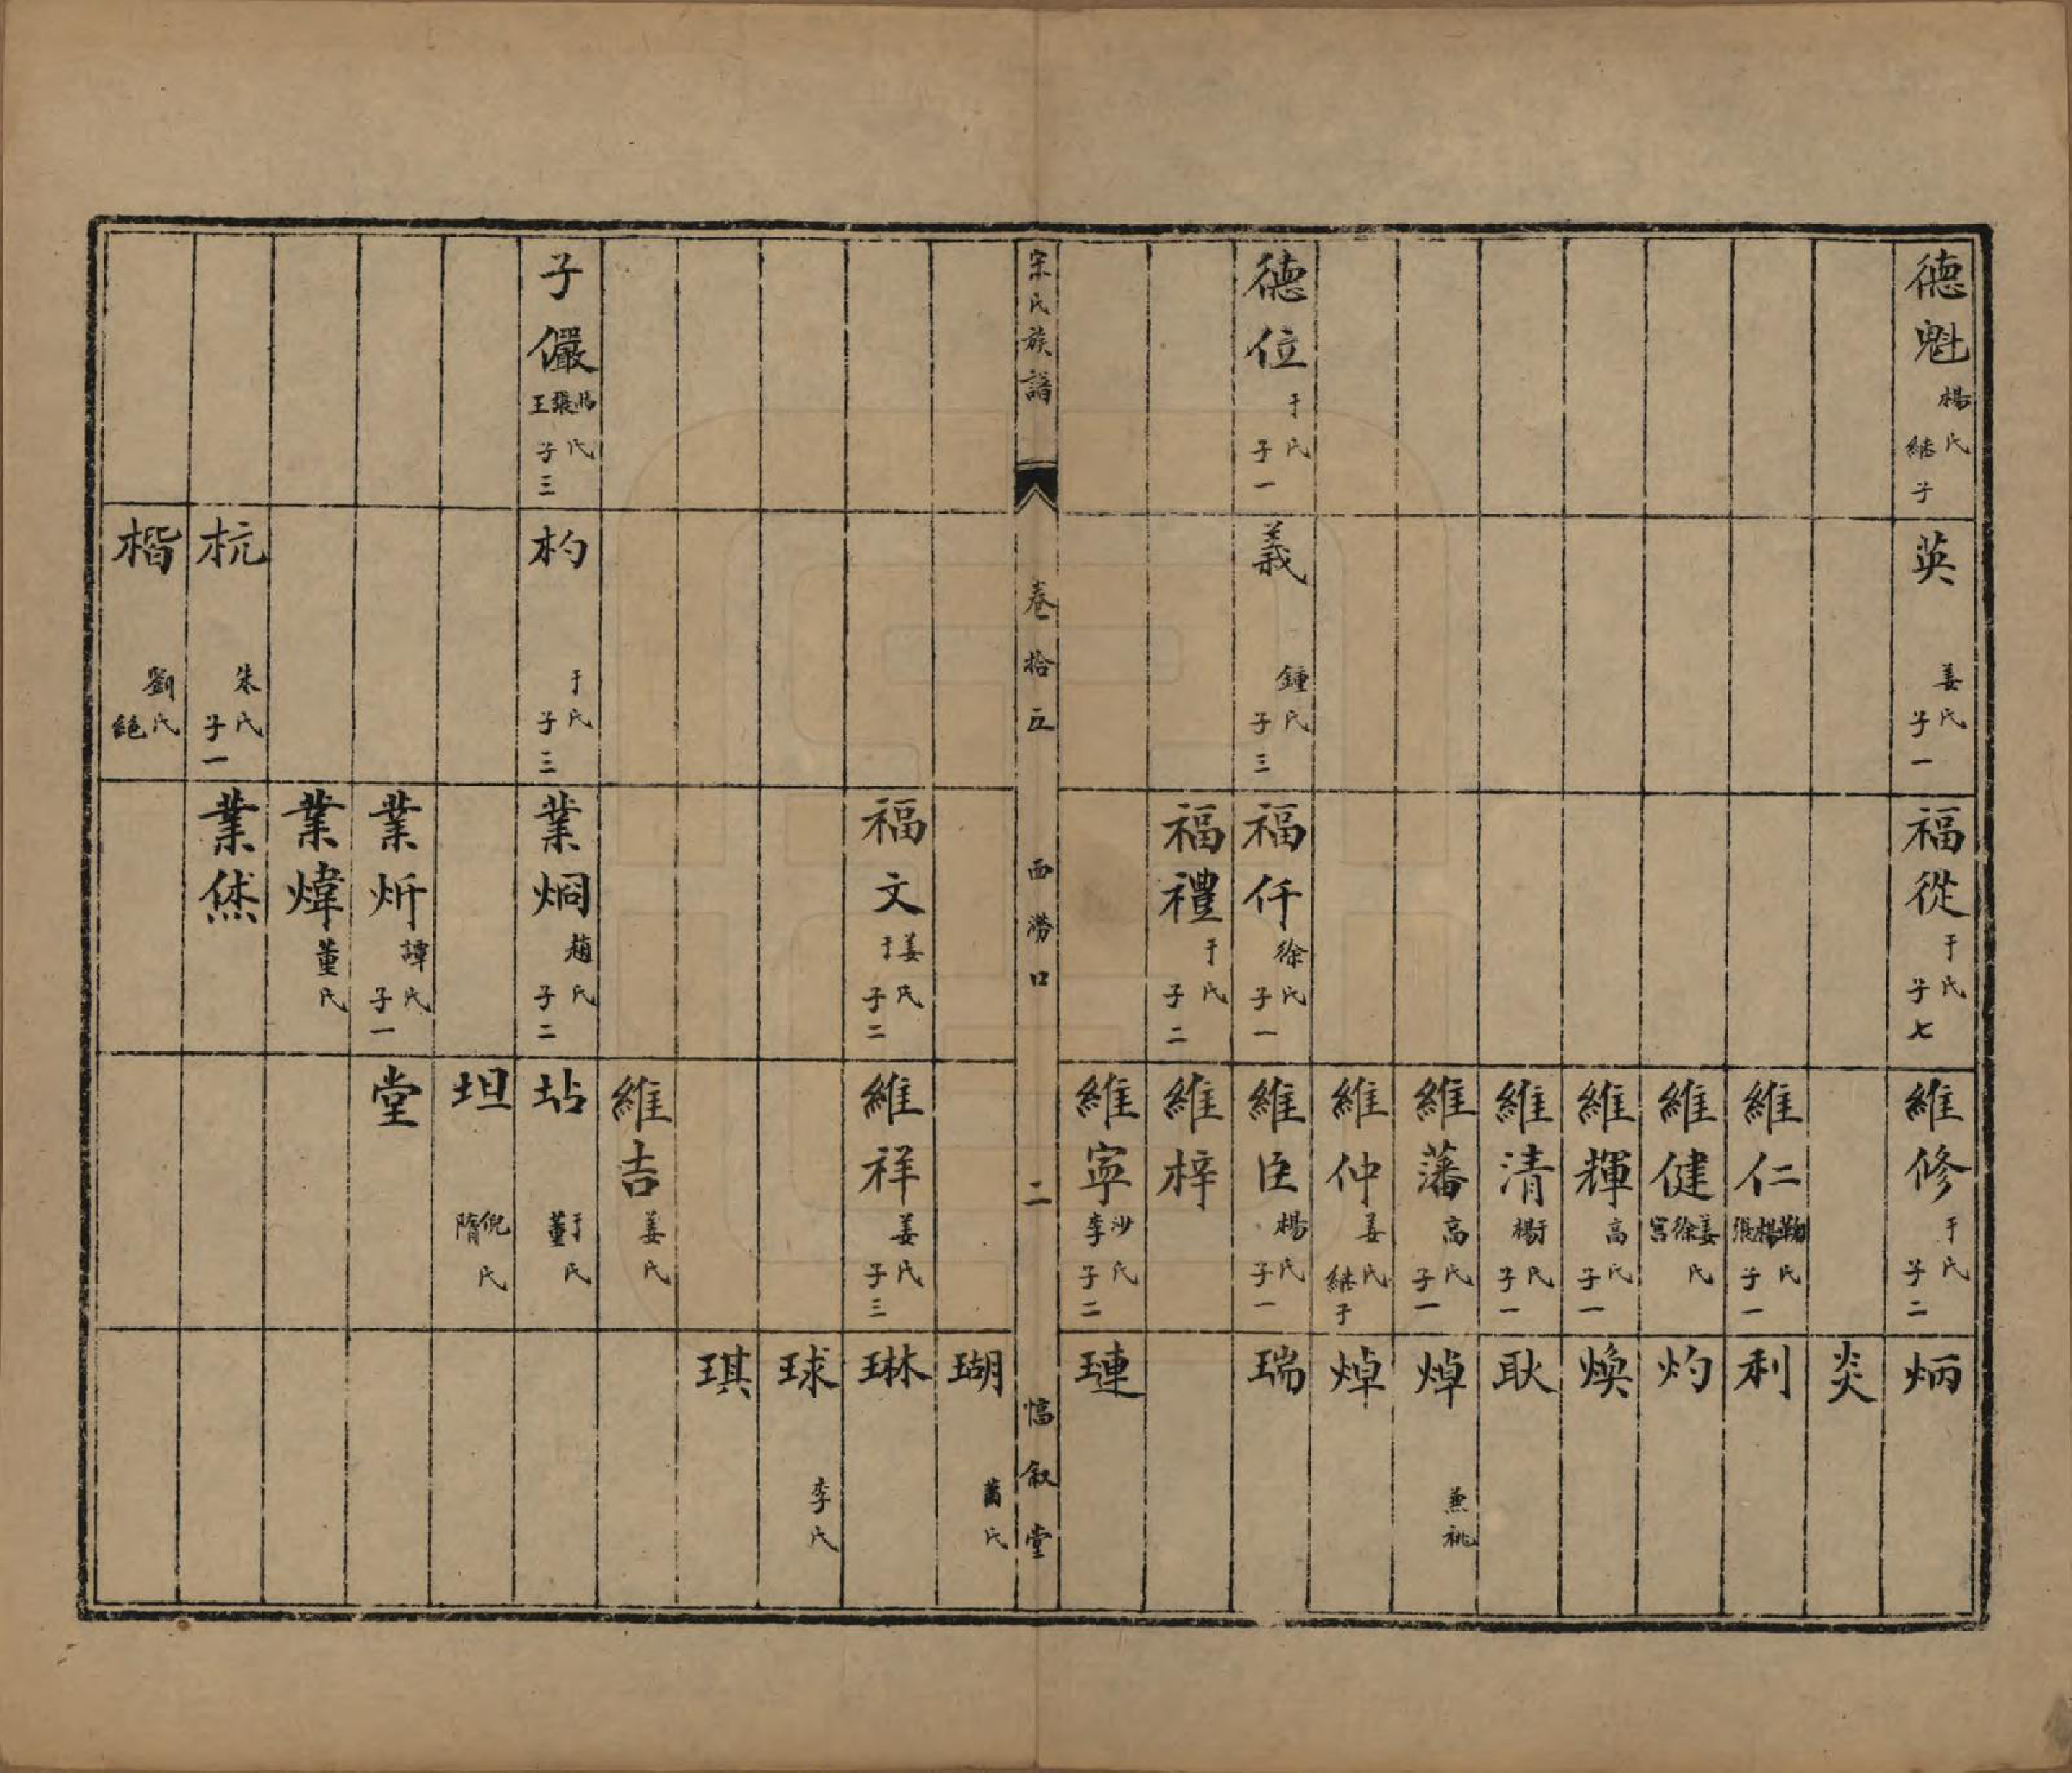 德魁 楊氏 継子
英 姜氏 子一
福從 于氏 子七
維修 于氏 子二
炳
炎
維仁 鞠楊張氏 子一
利
維健 姜徐宮氏
灼
維輝 高氏 子一
煥
維清 于楊氏 子一
耿
維藩 高氏 子一
焯 兼祧
維仲 姜氏 継子
焯
德位 于氏 子一
義 鍾氏 子三
福仟 徐氏 子一
維臣 楊氏 子一
瑞
福禮 于氏 子二
維梓
維寧 沙李氏 子二
璉
宋氏族譜 卷拾五 西澇口 二 惇叙堂
瑚 氏
福文 姜于氏 子二
維祥 姜氏 子三
琳
球 李氏
琪
維吉 姜氏
子儼 馮張王氏 子三
杓 于氏 子三
業炯 趙氏 子二
坫 于董氏
坦 倪隋氏
業炘 譚氏 子一
堂
業煒 董氏
杭 朱氏 子一
業烋
楷 劉氏 絕